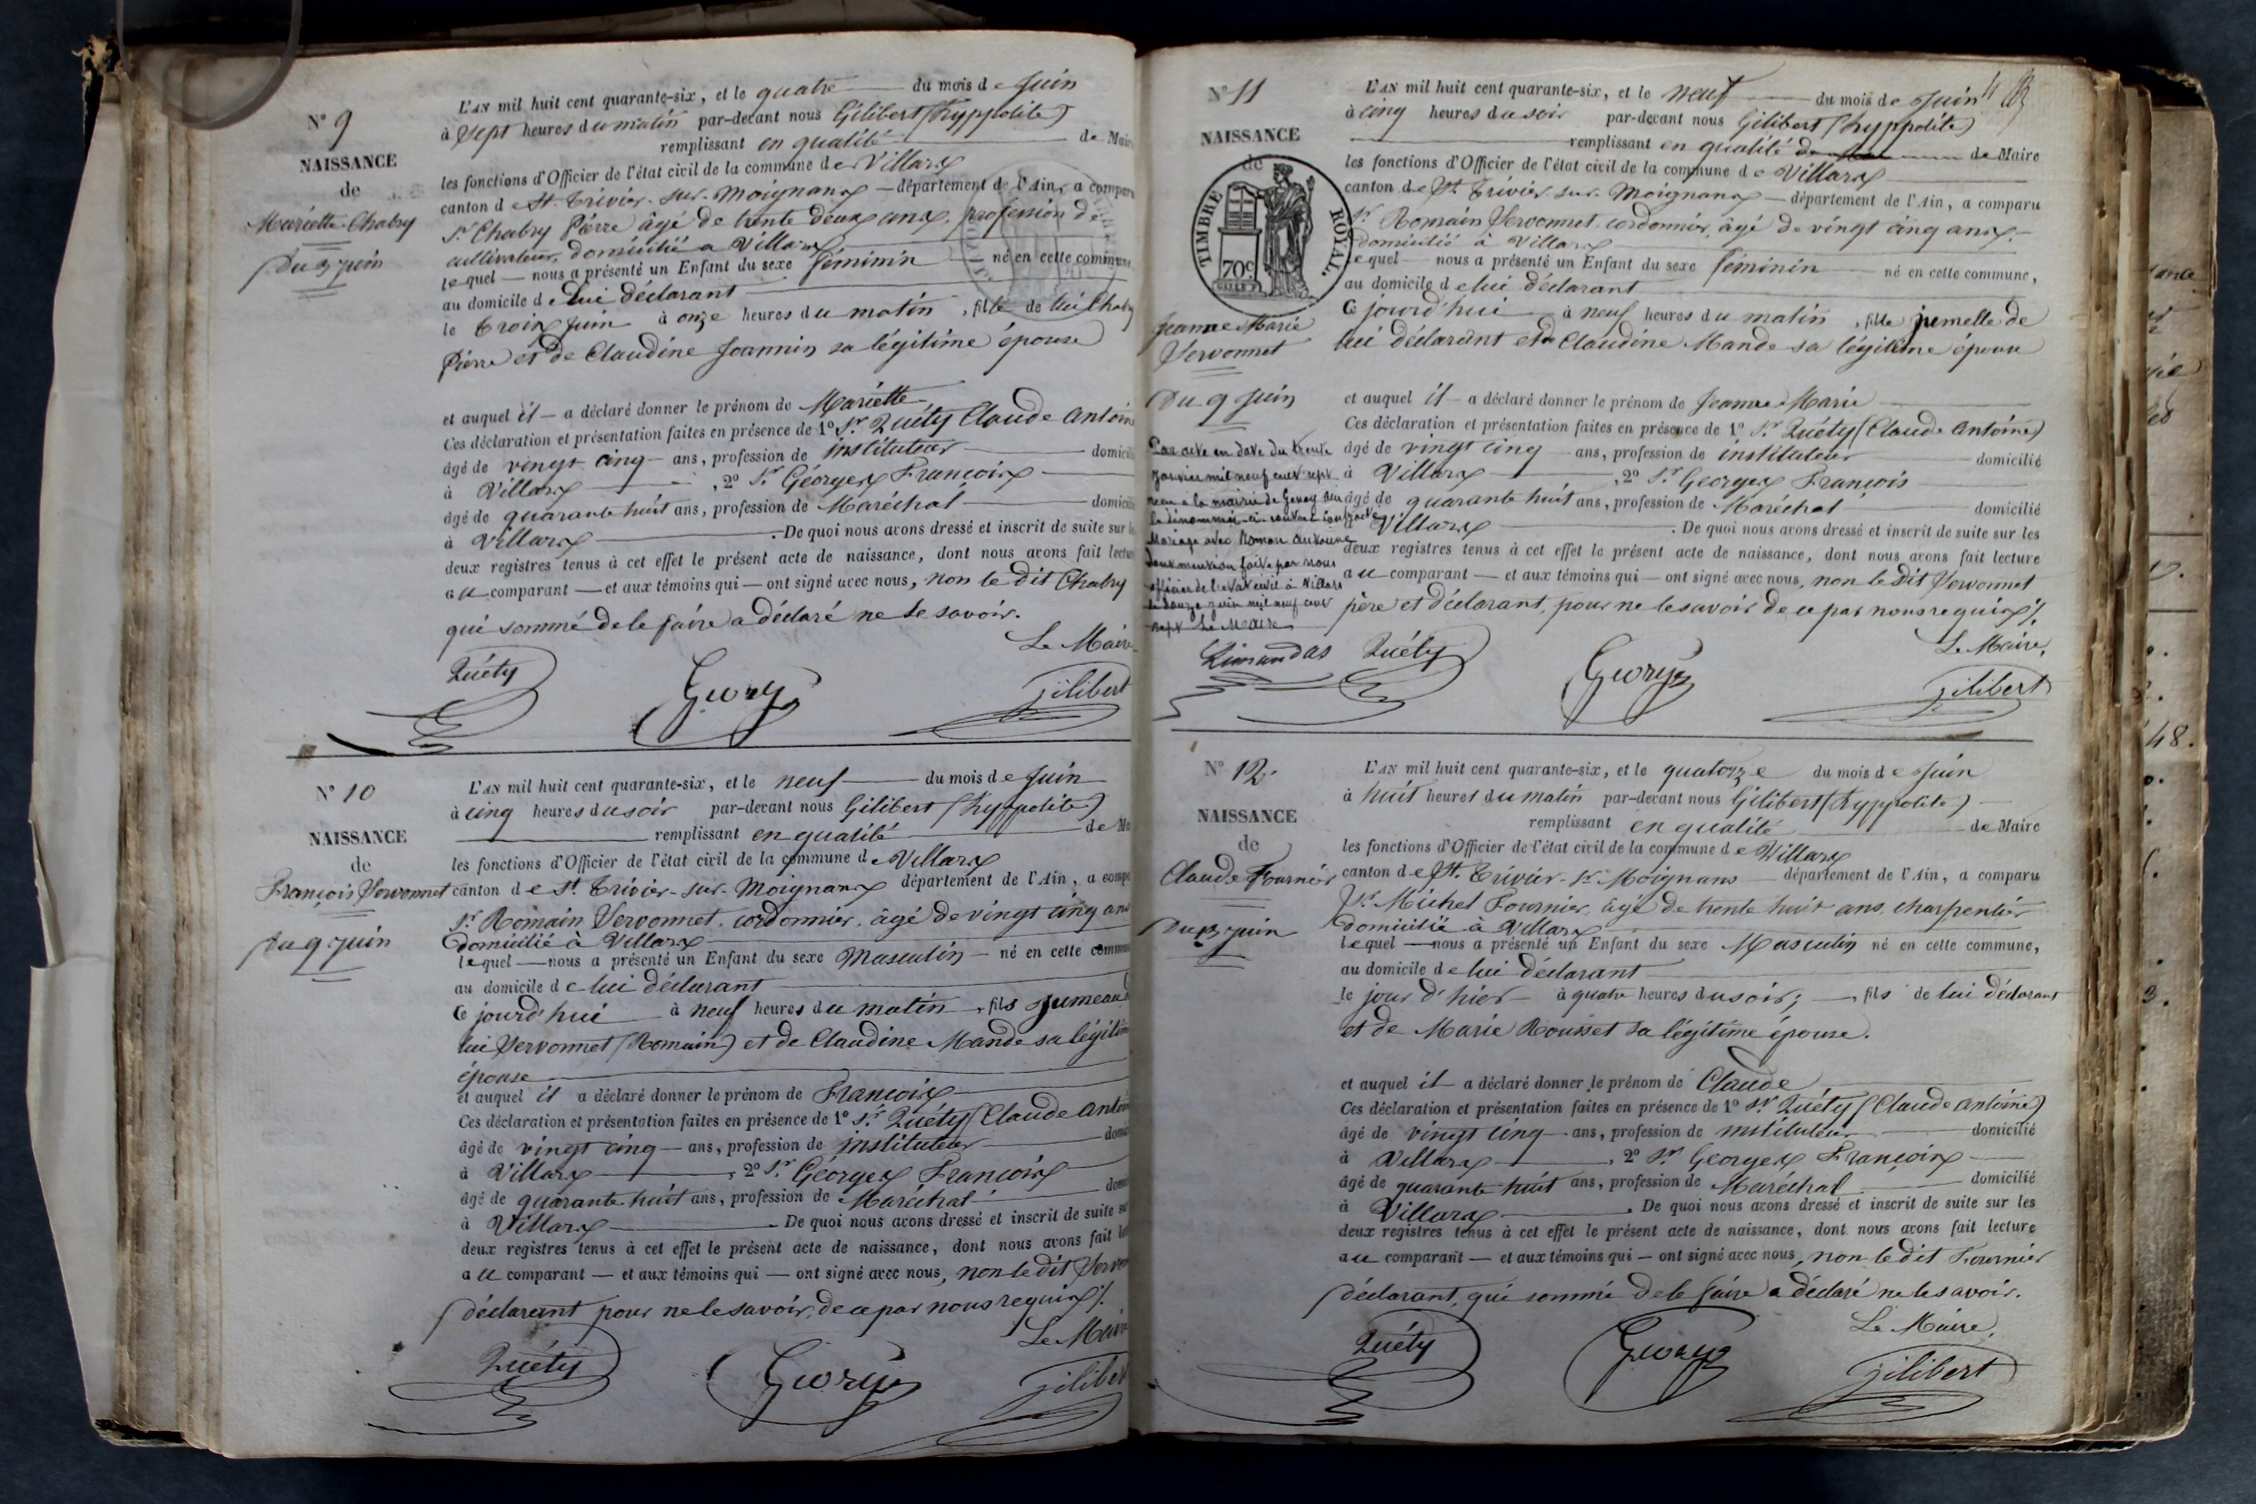 N° 9
NAISSANCE
de
Mariette Chabry
Du 3 juin
L'AN mil huit cent quarante-six, et le quatre du mois de Juin
à sept heures du matin par-devant nous Gilibert (hyppolite)
remplissant en qualité de Maire
les fonctions d'Officier de l'état civil de la commune de Villars
canton de St. Trivier-sur-Moignans département de l'Ain, a comparu
Sr. Chabry Pierre âgé de trente deux ans, profession de
cultivateur, domicilié à Villars
lequel nous a présenté un Enfant du sexe féminin né en cette commune
au domicile de lui déclarant
le trois juin à onze heures du matin, fille de lui Chabry
Pierre et de Claudine Joannin sa légitime épouse
et auquel il a déclaré donner le prénom de Mariette
Ces déclaration et présentation faites en présence de 1° Sr. Quéty Claude Antoine
âgé de vingt cinq ans, profession de instituteur domicilié
à Villars, 2° Sr. Georges François
âgé de quarante huit ans, profession de Maréchal domicilié
à Villars. De quoi nous avons dressé et inscrit de suite sur les
deux registres tenus à cet effet le présent acte de naissance, dont nous avons fait lecture
au comparant et aux témoins qui ont signé avec nous, non le dit Chabry
qui sommé de le faire a déclaré ne le savoir.
Le Maire
Quéty Georges Gilibert
N° 10
NAISSANCE
de
François Vervonnet
Du 9 juin
L'AN mil huit cent quarante-six, et le neuf du mois de Juin
à cinq heures du soir par-devant nous Gilibert (hyppolite)
remplissant en qualité de Ma
les fonctions d'Officier de l'état civil de la commune de Villars
canton de St. Trivier-sur-Moignans département de l'Ain, a compa
Sr. Romain Vervonnet, cordonnier, âgé de vingt cinq ans
domicilié à Villars
lequel nous a présenté un Enfant du sexe Masculin né en cette commune
au domicile de lui déclarant
Ce jourd'hui à neuf heures du matin, fils jumeau
lui Vervonnet (Romain) et de Claudine Mande sa légitime
épouse
et auquel il a déclaré donner le prénom de François
Ces déclaration et présentation faites en présence de 1° Sr. Quéty (Claude Antoine
âgé de vingt cinq ans, profession de instituteur domi
à Villars, 2° Sr. Georges François
âgé de quarante huit ans, profession de Maréchal domi
à Villars. De quoi nous avons dressé et inscrit de suite sur
deux registres tenus à cet effet le présent acte de naissance, dont nous avons fait lec
au comparant et aux témoins qui ont signé avec nous, non le dit Vervon
déclarant pour ne le savoir, de ce par nous requis ./.
Le Maire
Quéty Georges Gilibert
N° 11
NAISSANCE
de
TIMBRE ROYAL.
70c
Jeanne Marie
Vervonnet
Du 9 Juin
L'AN mil huit cent quarante-six, et le neuf du mois de Juin
à cinq heures du soir par-devant nous Gilibert (hyppolite)
remplissant en qualité de Maire
les fonctions d'Officier de l'état civil de la commune de Villars
canton de St. Trivier-sur-Moignans département de l'Ain, a comparu
Sr. Romain Vervonnet, cordonnier, âgé de vingt cinq ans,
domicilié à Villars
lequel nous a présenté un Enfant du sexe féminin né en cette commune,
au domicile de lui déclarant
Ce jourd'hui à neuf heures du matin, fille jumelle de
lui déclarant et de Claudine Mande sa légitime épouse
et auquel il a déclaré donner le prénom de Jeanne Marie
Ces déclaration et présentation faites en présence de 1° Sr. Quéty (Claude Antoine)
âgé de vingt cinq ans, profession de instituteur domicilié
à Villars, 2° Sr. Georges François
âgé de quarante huit ans, profession de Maréchal domicilié
à Villars. De quoi nous avons dressé et inscrit de suite sur les
deux registres tenus à cet effet le présent acte de naissance, dont nous avons fait lecture
au comparant et aux témoins qui ont signé avec nous, non le dit Vervonnet
père et déclarant, pour ne le savoir de ce par nous requis ./.
Par acte en date du trente
janvier mil neuf cent sept
reçu à la mairie de
la dénommée ci-contre a contracté
Mariage avec Romain
Dont mention faite par nous
officier de l'état civil à Villars
le douze juin mil neuf cent
sept Le Maire
Le Maire,
Limandas Quéty Georges Gilibert
N° 12
NAISSANCE
de
Claude Fournier
Du 13 juin
L'AN mil huit cent quarante-six, et le quatorze du mois de Juin
à huit heures du matin par-devant nous Gilibert (hyppolite)
remplissant en qualité de Maire
les fonctions d'Officier de l'état civil de la commune de Villars
canton de St. Trivier-sr-Moignans département de l'Ain, a comparu
Sr. Michel Fournier, âgé de trente huit ans, charpentier
domicilié à Villars
lequel nous a présenté un Enfant du sexe Masculin né en cette commune,
au domicile de lui déclarant
le jour d'hier à quatre heures du soir; fils de lui déclarant
et de Marie Rousset sa légitime épouse.
et auquel il a déclaré donner le prénom de Claude
Ces déclaration et présentation faites en présence de 1° Sr. Quéty (Claude Antoine)
âgé de vingt cinq ans, profession de instituteur domicilié
à Villars, 2° Sr. Georges François
âgé de quarante huit ans, profession de Maréchal domicilié
à Villars. De quoi nous avons dressé et inscrit de suite sur les
deux registres tenus à cet effet le présent acte de naissance, dont nous avons fait lecture
au comparant et aux témoins qui ont signé avec nous, non le dit Fournier
déclarant, qui sommé de le faire a déclaré ne le savoir.
Le Maire,
Quéty Georges Gilibert
48.